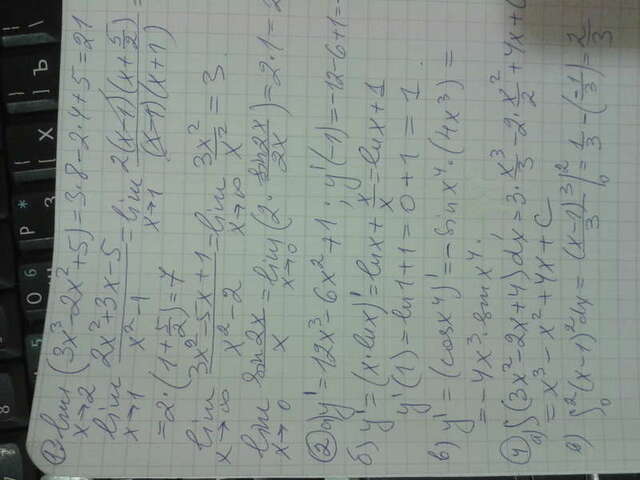 ① lim (3x³-2x²+5)=3·8-2·4+5=21
x→2
lim 2x²+3x-5 / x²-1 = lim 2(x-1)(x+5/2) / (x-1)(x+1) =
x→1 x→1
=2·(1+5/2)=7
lim 3x²-5x+1 / x²-2 = lim 3x²/x² = 3.
x→∞ x→∞
lim sin2x / x = lim (2· sin2x / 2x) = 2·1=2
x→0 x→0
② а) y'=12x³-6x²+1; y'(-1)=-12-6+1=-
б) y'=(x·lnx)'=lnx+ x/x =lnx+1
y'(1)=ln1+1=0+1=1.
в) y'=(cosx⁴)'=-sinx⁴·(4x³)=
=-4x³·sinx⁴.
④ а) ∫(3x²-2x+4)dx=3· x³/3 -2· x²/2 +4x+C
=x³-x²+4x+C
в) ∫₀²(x-1)²dx= (x-1)³/3 |₀² = 1/3 -(-1/3)= 2/3